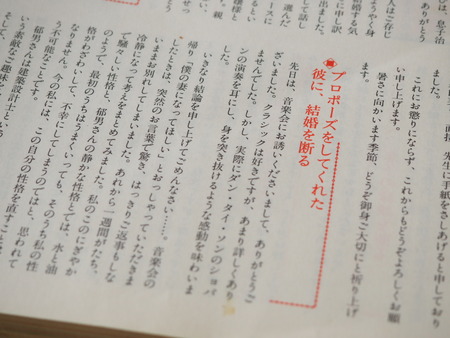 びは、息子治
ありがとう
人はご存じ
ようやく身
結婚する気
に申し訳
出ました。
して話し
選んだ
ースに
ました。
直接、先生に手紙をさしあげると申しており
これにお懲りにならず、これからもどうぞよろしくお願
い申し上げます。
暑さに向かいます季節、どうぞ御身ご大切にと祈り上げ
ます。
プロポーズをしてくれた
彼に、結婚を断る
先日は、音楽会にお誘いくださいまして、ありがとうご
ざいました。クラシックは好きですが、あまり詳しくあり
ませんでした。しかし、実際にダン・タイ・ソンのショパ
ンの演奏を耳にし、身を突き抜けるような感動を味わいま
した。
いきなり結論を申し上げてごめんなさい……。音楽会の
帰り「僕の妻になってほしい」とおっしゃっていただきま
したときは、突然のお言葉で驚き、はっきりご返事もしな
いままお別れしてしまいました。あれから一週間がたち、
冷静になって考えをまとめてみました。私のこのにぎやか
で騒々しい性格と、郁男さんの静かな性格とでは、水と油
のようで、最初のうちはうまくいっても、そのうち私の性
格がわざわいして、不幸にしてしまうのではと、思われて
なりません。今の私には、この自分の性格を直すことは
う不可能なことです。
郁男さんは建築設計士という
いう素敵なご趣味を